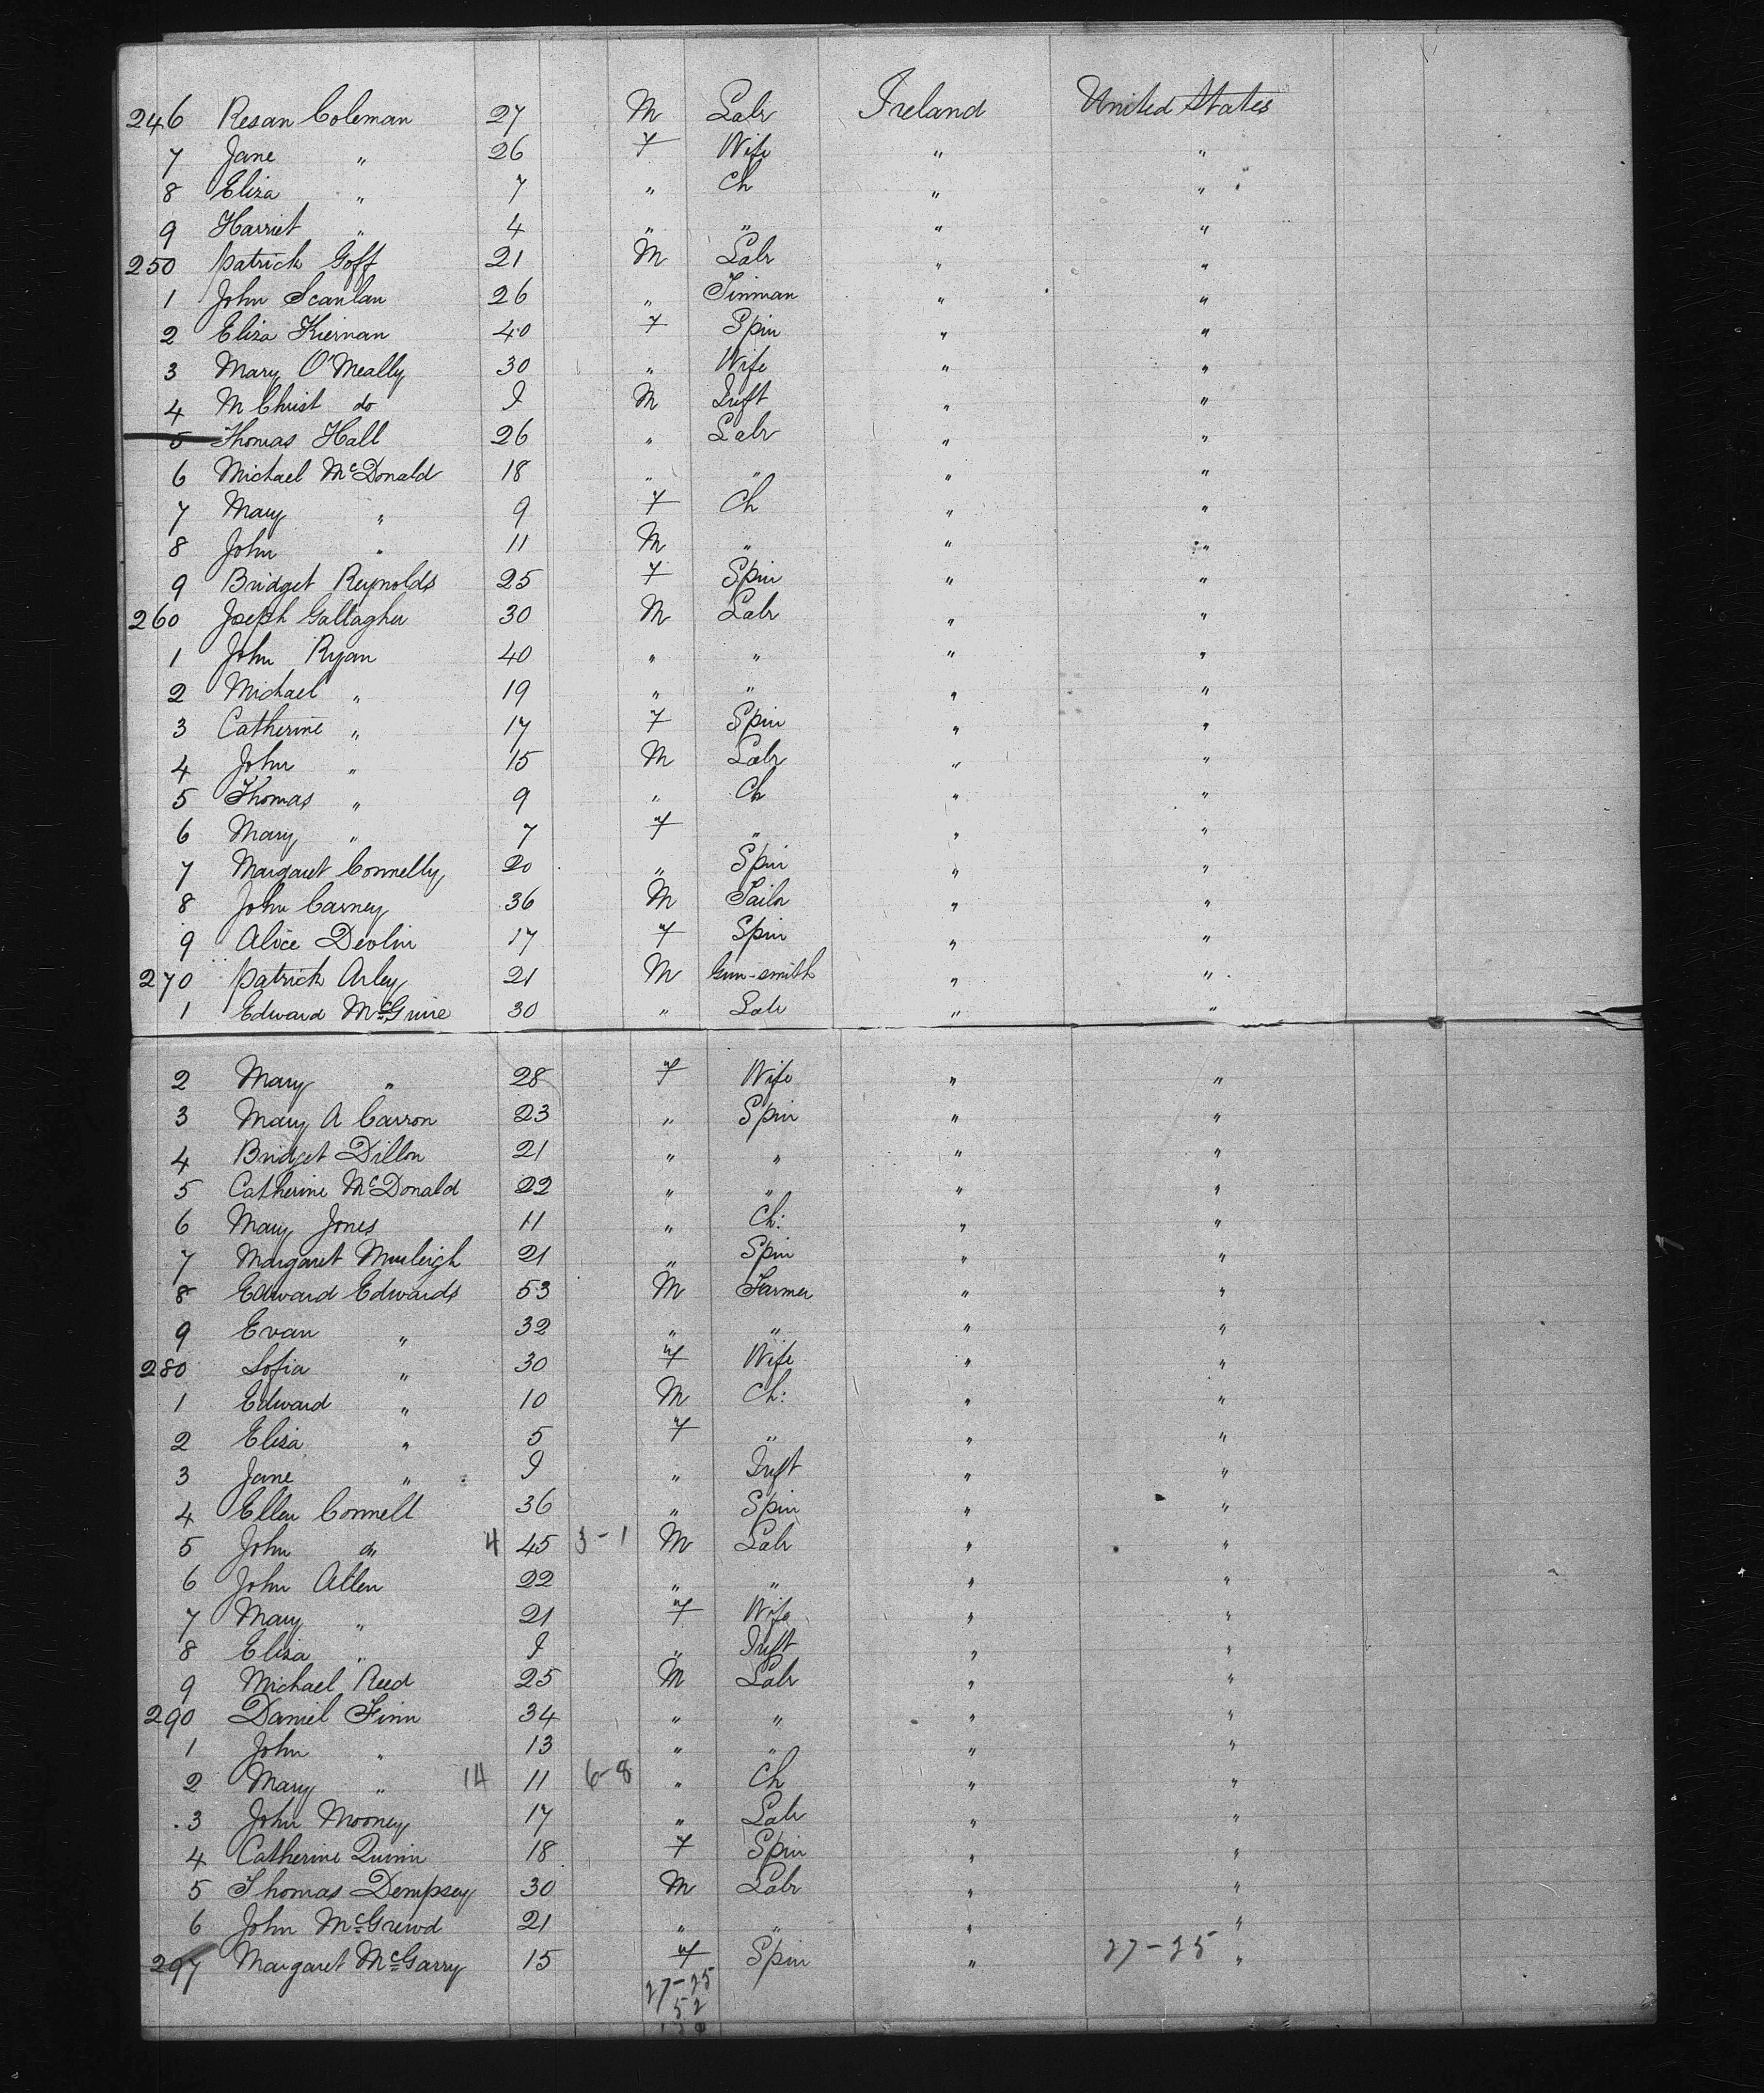 246 Resan Coleman 27 M Labr Ireland United States
7 Jane " 26 F Wife " "
8 Eliza " 7 " Ch " "
9 Harriet " 4 " " " "
250 Patrick Goff 21 M Labr " "
1 John Scanlan 26 " Tinman " "
2 Eliza Kiernan 40 F Spin " "
3 Mary O'Meally 30 " Wife " "
4 M Christ do I M Inft " "
5 Thomas Hall 26 " Labr " "
6 Michael McDonald 18 " " " "
7 Mary " 9 F Ch " "
8 John " 11 M " " "
9 Bridget Reynolds 25 F Spin " "
260 Joseph Gallagher 30 M Labr " "
1 John Ryan 40 " " " "
2 Michael " 19 " " " "
3 Catherine " 17 F Spin " "
4 John " 15 M Labr " "
5 Thomas " 9 " Ch " "
6 Mary " 7 F " " "
7 Margaret Connelly 20 " Spin " "
8 John Carney 36 M Tailor " "
9 Alice Devlin 17 F Spin " "
270 Patrick Arley 21 M Gun-smith " "
1 Edward McGuire 30 " Labr " "
2 Mary " 28 F Wife " "
3 Mary A Carron 23 " Spin " "
4 Bridget Dillon 21 " " " "
5 Catherine McDonald 22 " " " "
6 Mary Jones 11 " Ch: " "
7 Margaret 21 " Spin " "
8 Edward Edwards 53 M Farmer " "
9 Evan " 32 " " " "
280 Sofia " 30 F Wife " "
1 Edward " 10 M Ch: " "
2 Eliza " 5 F " " "
3 Jane " I " Inft " "
4 Ellen Connell 36 " Spin " "
5 John do 4 45 3-1 M Labr " "
6 John Allen 22 " " " "
7 Mary " 21 F Wife " "
8 Eliza " I " Inft " "
9 Michael Reed 25 M Labr " "
290 Daniel Finn 34 " " " "
1 John " 13 " " " "
2 Mary " 14 11 6-8 " Ch " "
3 John Mooney 17 " Labr " "
4 Catherine Quinn 18 F Spin " "
5 Thomas Dempsey 30 M Labr " "
6 John 21 " " " "
297 Margaret McGarry 15 F Spin " 27-25 "
27-25
52